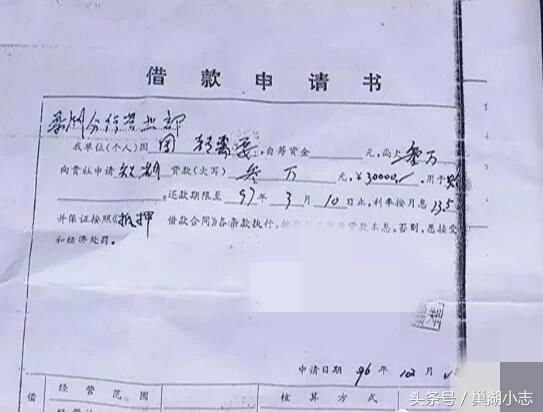 借款申请书
营业部
我单位(个人)因 需要,自筹资金 元,尚欠叁万
向贵社申请短期贷款(大写)叁万元,¥30000,用于
还款期限至97年3月10日止,利率按月息13.5
并保证按照《抵押借款合同》各条款执行,按 贷款本息。否则,愿接受
和经济处罚。
申请日期 96年12月
借 经营范围 核算方式
头条号 / 巢湖小志